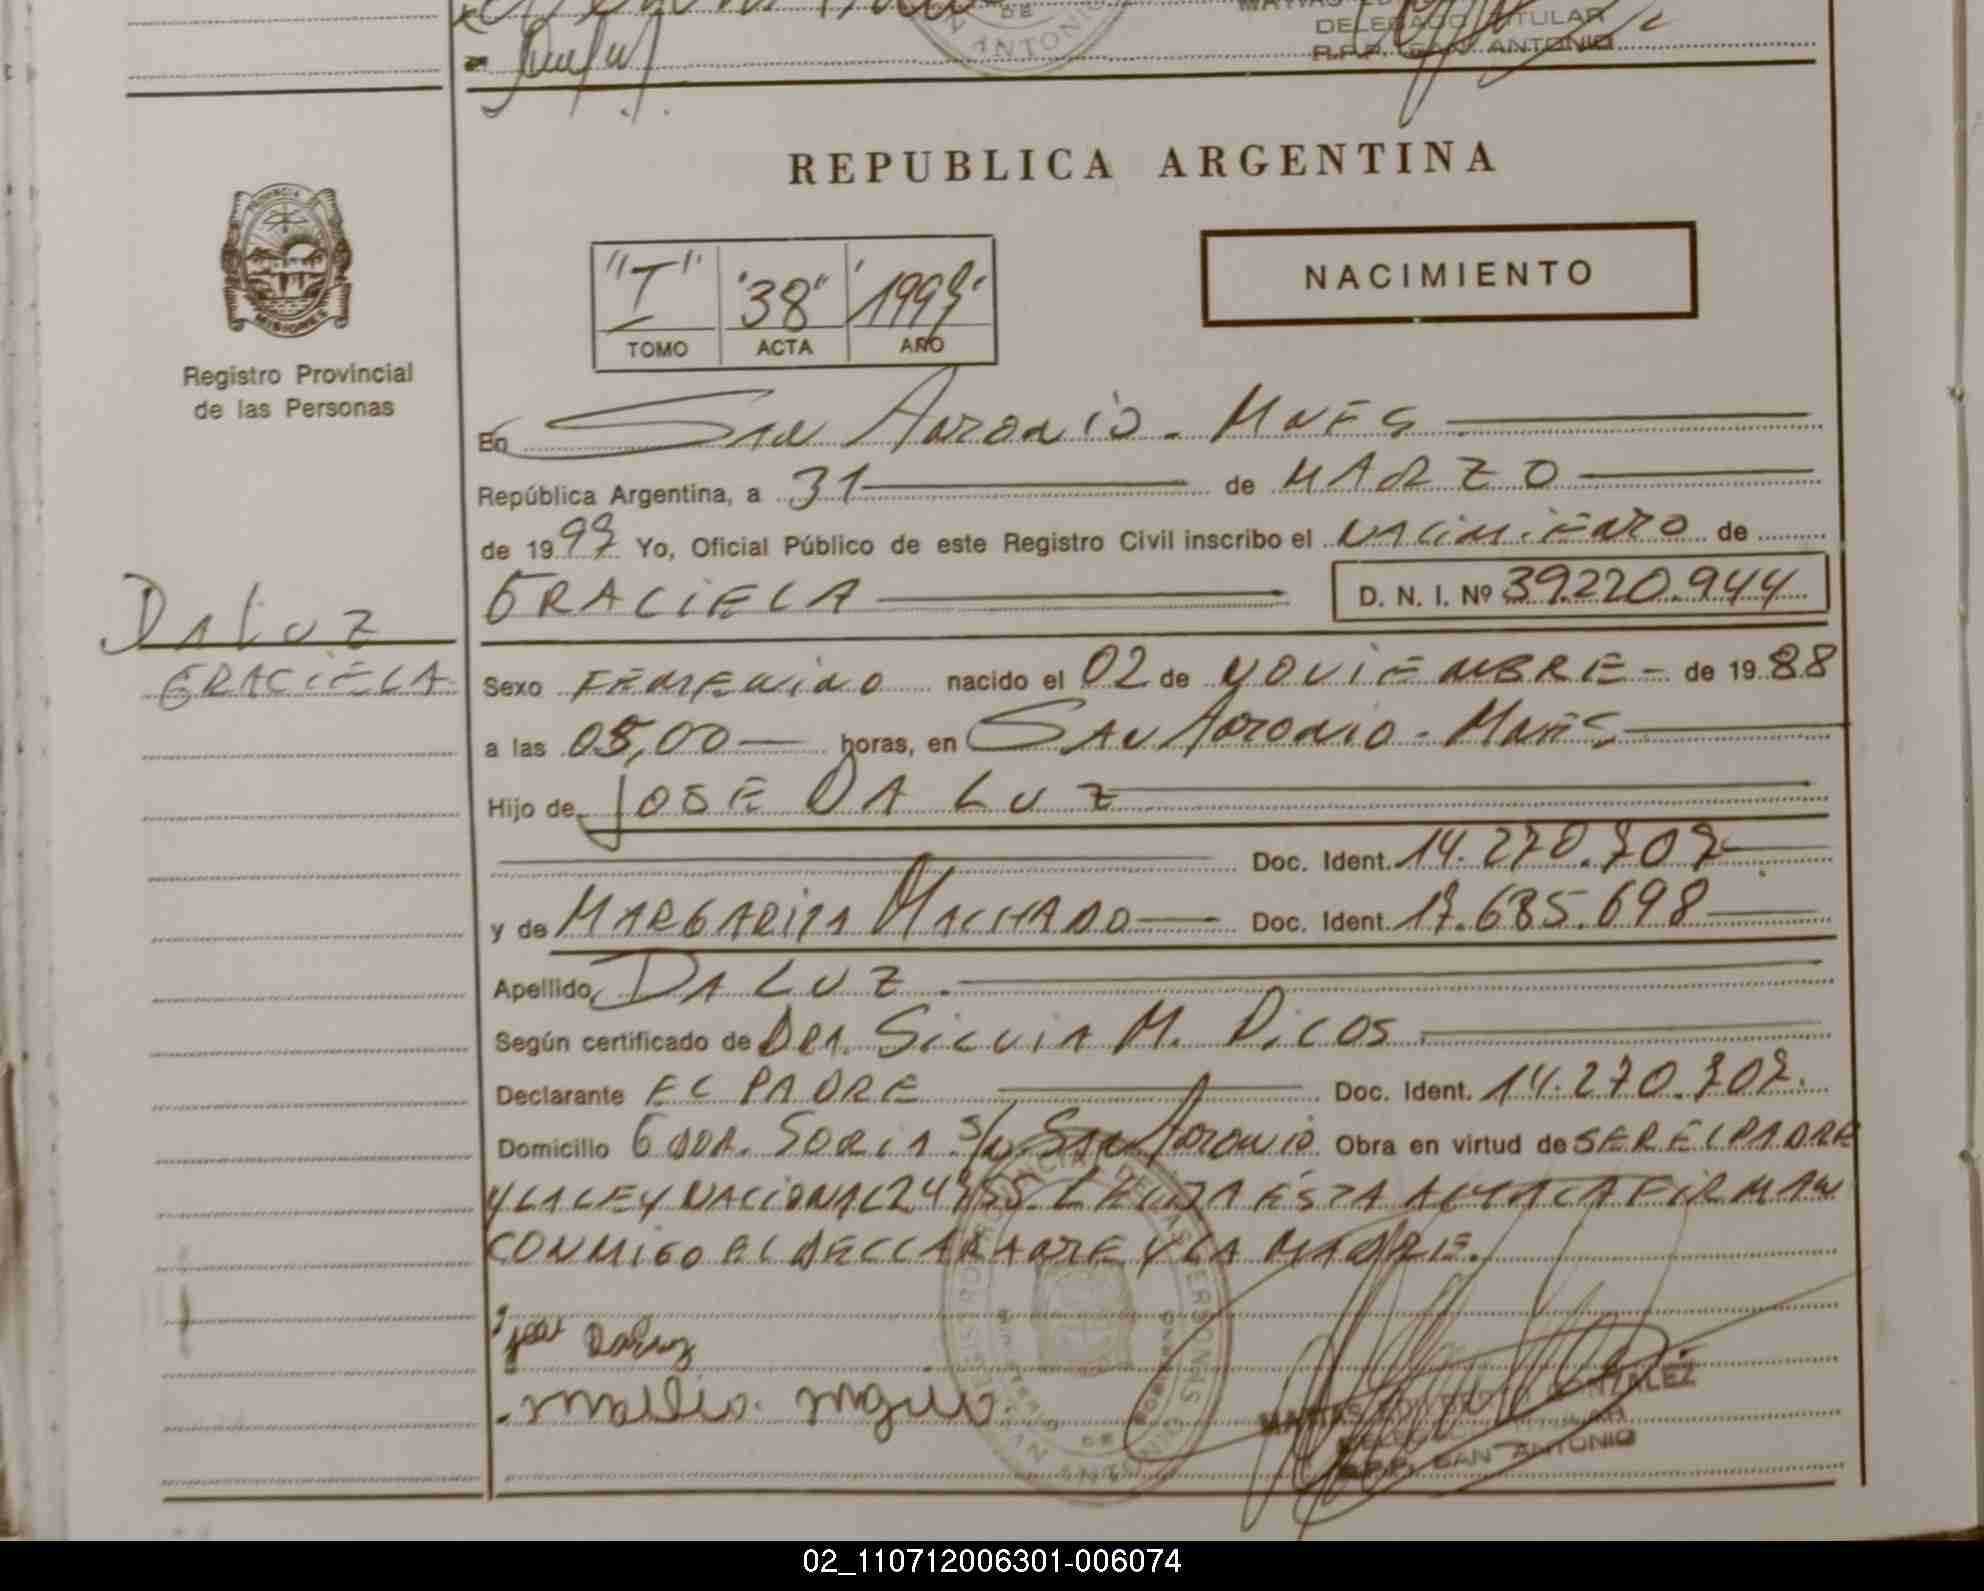 DE
ANTONIO
DELEGADO TITULAR
R.P.P. SAN ANTONIO
REPUBLICA ARGENTINA
PROVINCIA
MISIONES
Registro Provincial
de las Personas
"I" "38"
TOMO ACTA AÑO
NACIMIENTO
En San Antonio - Mnes
República Argentina, a 31 de MARZO
de 19 97 Yo, Oficial Público de este Registro Civil inscribo el NACIMIENTO de
GRACIELA D. N. I. Nº 39.220.944
DA LUZ
GRACIELA
Sexo FEMENINO nacido el 02 de NOVIEMBRE - de 19 88
a las 05,00 horas, en San Antonio - Mnes
Hijo de JOSE DA LUZ
Doc. Ident. 14.270.707
y de MARGARITA MACHADO Doc. Ident. 17.685.698
Apellido DA LUZ
Según certificado de DRA. SILVIA M. RICOS
Declarante EL PADRE Doc. Ident. 14.270.707.
Domicilio GDOR. SORIA S/N SAN ANTONIO Obra en virtud de SER EL PADRE
Y LA LEY NACIONAL LEIDA ESTA ACTA LA FIRMAN
CONMIGO EL DECLARANTE Y LA MADRE.
GONZALEZ
SAN ANTONIO
02_110712006301-006074